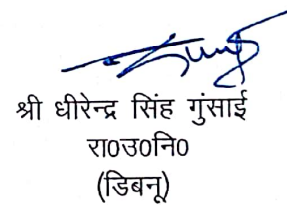 श्री धीरेन्द्र सिंह गुंसाई
रा0उ0नि0
(डिबनू)